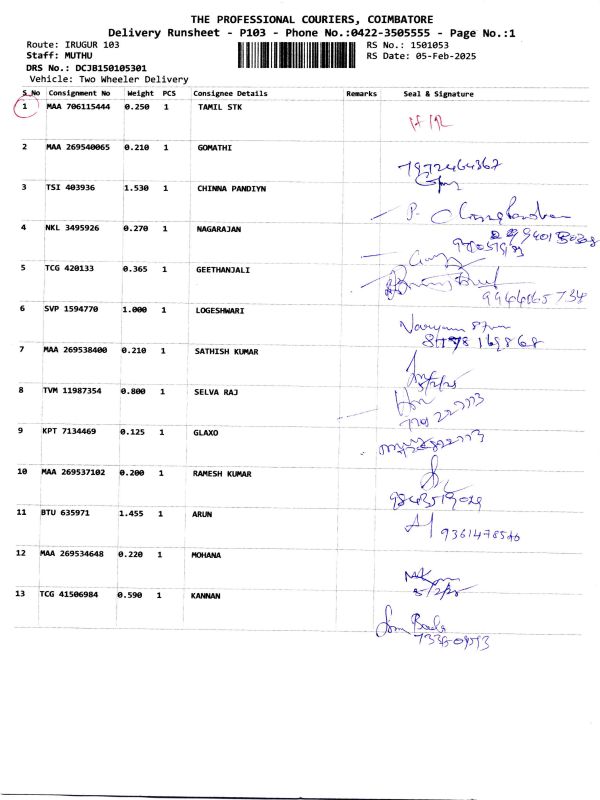 THE PROFESSIONAL COURIERS, COIMBATORE
Delivery Runsheet - P103 - Phone No.:0422-3505555 - Page No.:1
Route: IRUGUR 103 RS No.: 1501053
Staff: MUTHU RS Date: 05-Feb-2025
DRS No.: DCJB150105301
Vehicle: Two Wheeler Delivery
S.No Consignment No Weight PCS Consignee Details Remarks Seal & Signature
1 MAA 706115444 0.250 1 TAMIL STK
2 MAA 269540065 0.210 1 GOMATHI
7972464367
3 TSI 403936 1.530 1 CHINNA PANDIYN
P.
4 NKL 3495926 0.270 1 NAGARAJAN
5 TCG 420133 0.365 1 GEETHANJALI
6 SVP 1594770 1.000 1 LOGESHWARI
7 MAA 269538400 0.210 1 SATHISH KUMAR
5/2/25
8 TVM 11987354 0.800 1 SELVA RAJ
9 KPT 7134469 0.125 1 GLAXO
10 MAA 269537102 0.200 1 RAMESH KUMAR
11 BTU 635971 1.455 1 ARUN
12 MAA 269534648 0.220 1 MOHANA
5/2/25
13 TCG 41506984 0.590 1 KANNAN